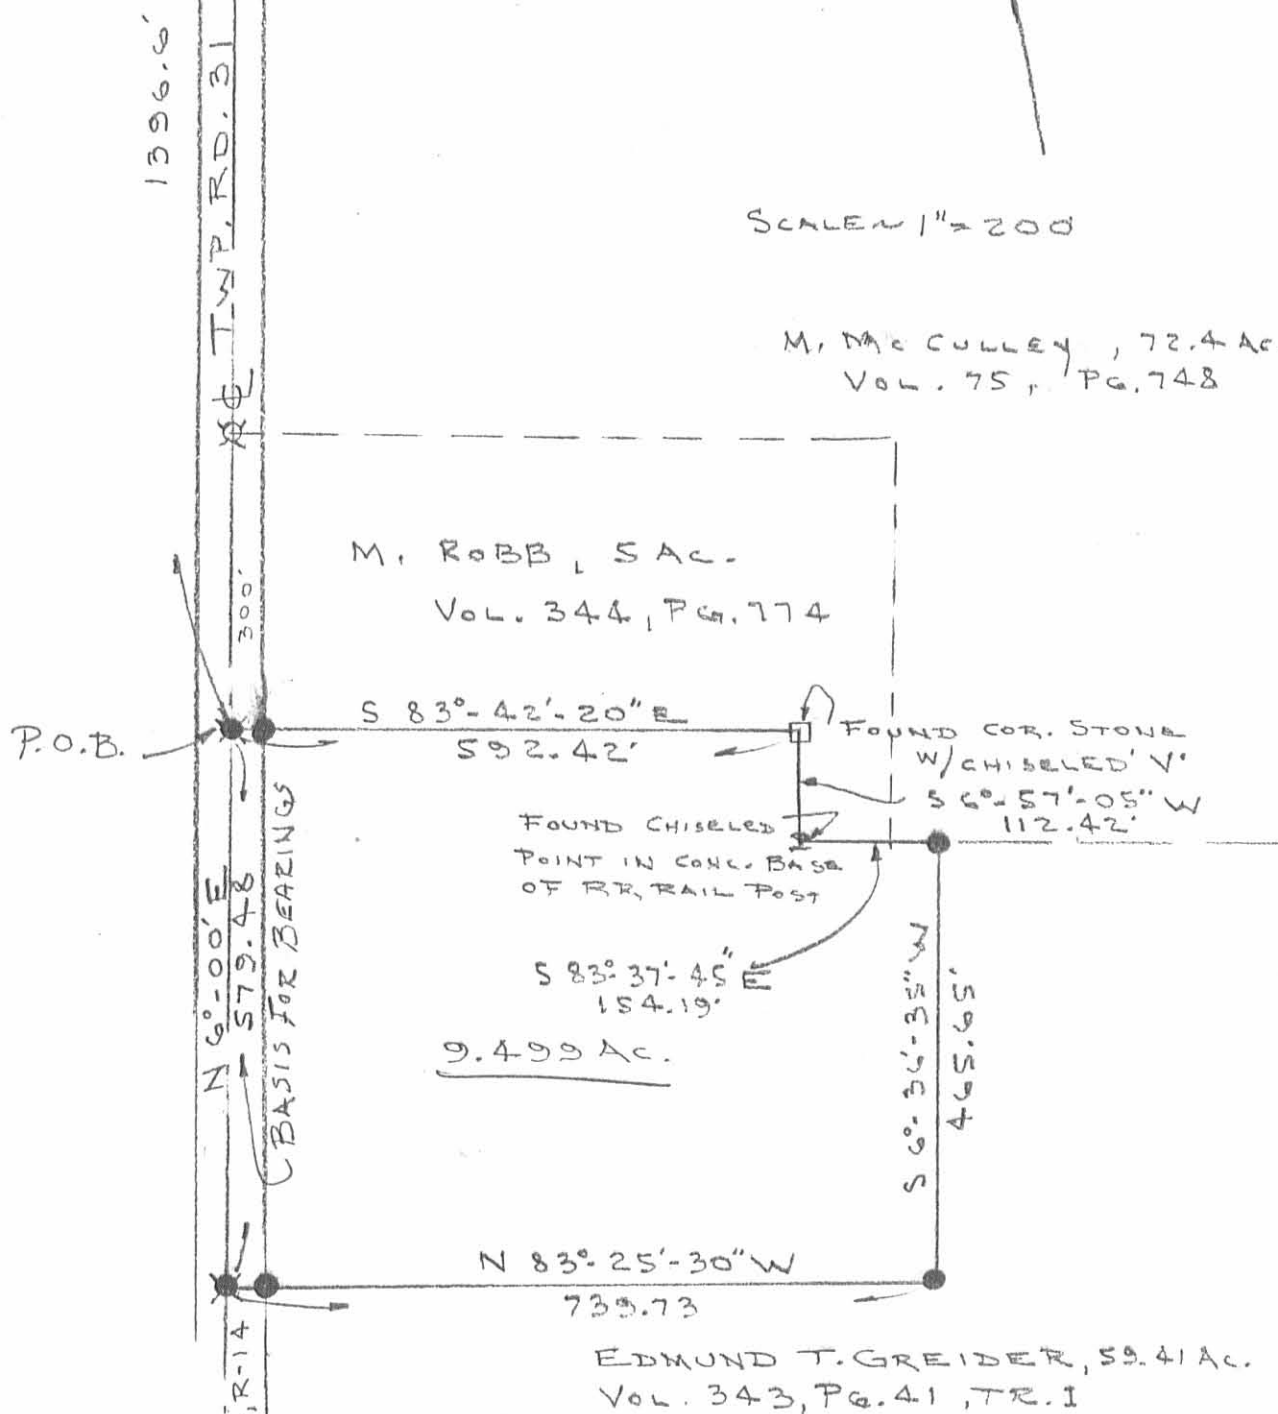 1396.6'
℄ TWP. RD. 31
SCALE ~ 1" = 200'
M. Mc CULLEY, 72.4 AC
VOL. 75, PG. 748
M. ROBB, 5 AC.
VOL. 344, PG. 774
300'
S 83°-42'-20" E
592.42'
P.O.B.
FOUND COR. STONE
W/ CHISELED 'V'
S 6°-57'-05" W
112.42'
FOUND CHISELED
POINT IN CONC. BASE
OF RR, RAIL POST
N 6°-00' E
579.48
BASIS FOR BEARINGS
S 83°-37'-45" E
154.19'
S 6°-36'-35" W
465.65'
9.499 AC.
N 83°-25'-30" W
739.73
R-14
EDMUND T. GREIDER, 59.41 AC.
VOL. 343, PG. 41, TR. I